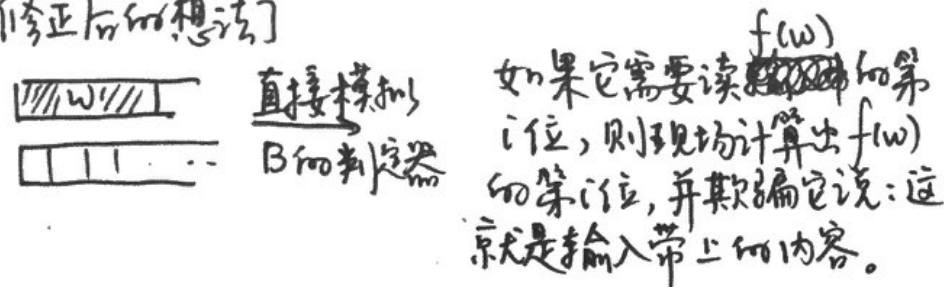 [修正后的想法]
W
直接模拟
B的判定器
f(w)
如果它需要读的第
i位，则现场计算出f(w)
的第i位，并欺骗它说：这
就是输入带上的内容。